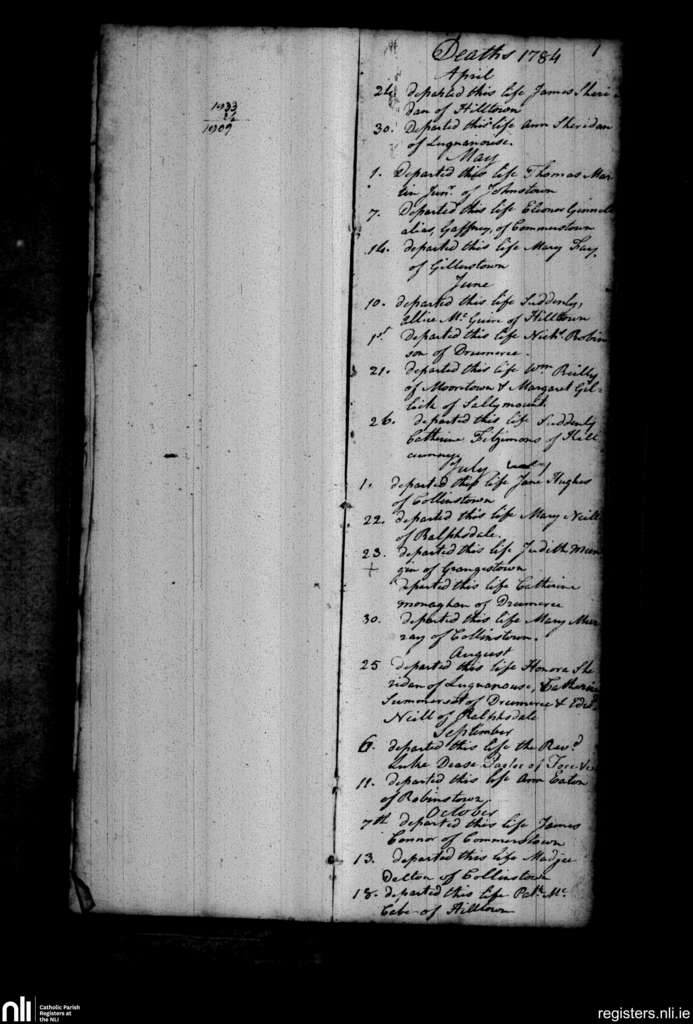 1
Deaths 1784
April
24 departed this life James Sheri-
dan of Hilltown
30. Departed this life Ann Sheridan
of Lugnanouse.
May
1. Departed this life Thomas Mar
tin Junr. of Johnstown
7. Departed this life Elionor
alias, Gaffney, of Commerstown
14. departed this life Mary Fay,
of Gillerstown
June
10. departed this life Suddenly,
Allice Mc Guire of Hilltown
1st Departed this life Nichs. Robin
son of Drumcree.
21. departed this life Wm Reilly
of Moortown & Margaret Gil-
lick of Sallymount
26. departed this life Suddenly
Catherine Fitzimons of Kill
July
1. departed this life Jane Hughes
of Collinstown
22. departed this life Mary Neill
of Ralphsdale.
23. departed this life Judith
+ of Grangestown
departed this life Catherine
Monaghan of Drumcree
30. departed this life Mary Mur
ray of Collinstown.
August
25 departed this life Honora She
ridan of Lugnanouse, Catharine
of Drumcree &
Neill of Ralphsdale
September
6. departed this life the Revd
Luke Dease of Fore
11. departed this life Ann Eaton
of Robinstown,
October
7th departed this life James
Connor of Commerstown
13. departed this life Madge
Delton of Collinstown
18. departed this life Patk. Mc.
Cabe of Hilltown
nli
Catholic Parish
Registers at
the NLI
registers.nli.ie